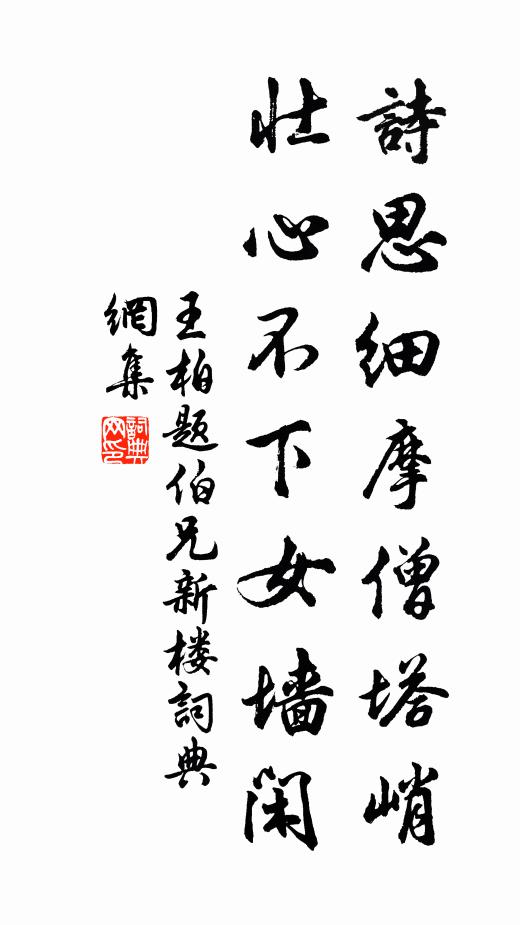 詩思细摩僧塔峭
壮心不下女墙闲
王柏題伯兄新楼詞典
網集
詞典
网印